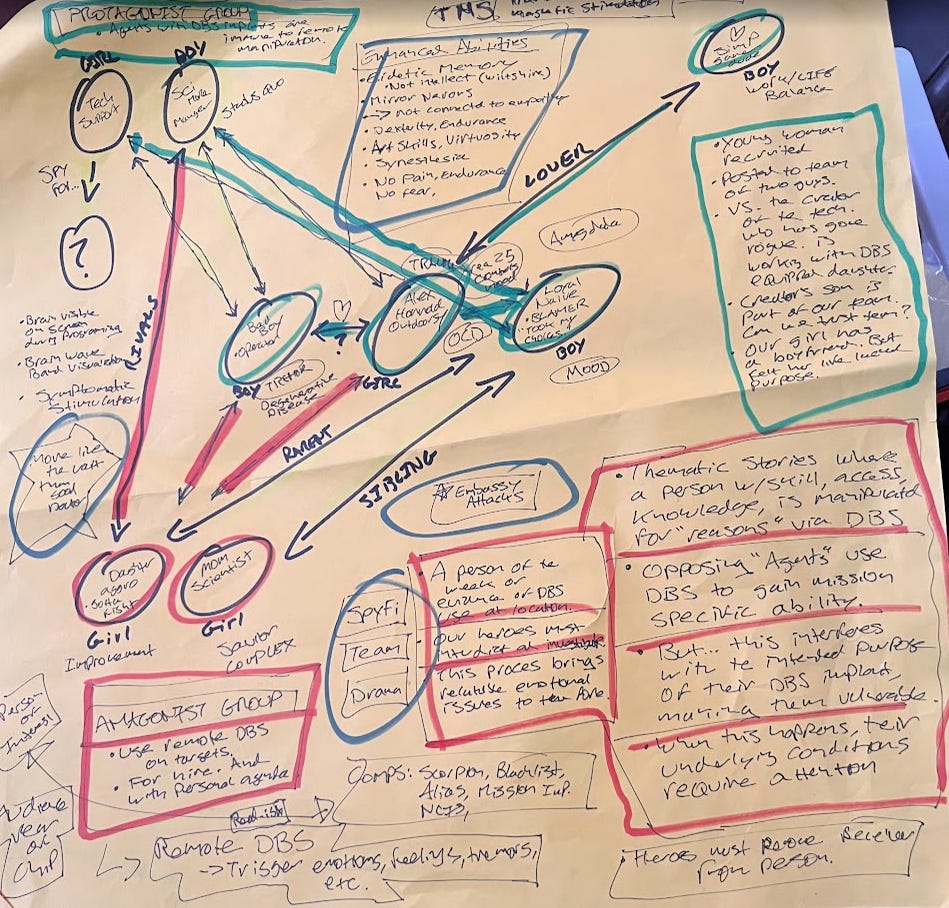 PROTAGONIST GROUP
• Agents with DBS implants are
immune to remote
manipulation.
TMS
Magnetic Stimulation
GIRL
Tech
Support
BOY
Sci
More
Manager
Status quo
SPY
FOR...
?
Enhanced Abilities
• Eidetic Memory
• Not intellect (wiltshire)
• Mirror Nerons
-> not connected to empathy
• Dexterity, Endurance
• Art Skills, Virtuosity
• Synesthesia
• No Pain, Endurance
No fear,
Simp
Same
dude
BOY
WORK/LIFE
Balance
LOVER
• Young woman
recruited
• Posted to team
of two guys.
• VS. the Creator
of the tech.
who has gone
rogue. is
working with DBS
equipped daughter
• Creator's son is
part of our team.
Can we trust team?
• Our girl has
a boyfriend. But
felt her live lacked
purpose.
Amygdala
Area 25
Bad Boy
• Operator
BOY
TREMOR
Degenerative
Disease
?
Alex
Honnold
Outdoorsy
GIRL
OCD
Local
Naive
• BLAMER
"TOOK my
choices"
BOY
MOOD
RIVALS
• Brain visible
on screen
during programing
• Brain wave
Band visualization
• Symptomatic
Stimulation
PARENT
SIBLING
Move like
the wait
then
Good
Doctor
Embassy
Attacks
Daughter
aggro
gotta
fight
Girl
Improvement
MOM
Scientist
Girl
Savior
COMPLEX
Spyfi
Team
Drama
• A person of the
week or
evidence of DBS
use at location.
• Our heroes must
interdict or investigate
This proces brings
relatable emotional
issues to the fore.
• Thematic stories where
a person w/skill, access,
knowledge, is manipulated
for "reasons" via DBS
• Opposing "Agents" use
DBS to gain mission
specific ability.
• But... this interferes
with te intended purpose
of their DBS implant,
making them vulnerable.
• When this happens, their
underlying conditions
require attention
Person
of
Interest
ANTAGONIST GROUP
• Use remote DBS
on targets.
For hire. And
• with Personal agenda
Comps: Scorpion, Blacklist,
Alias, Mission Imp.
NCIS,
Audience
view of
Chip
Remote DBS
-> Trigger emotions, feelings, tremors,
etc.
• Heroes must remove Receiver
from person.